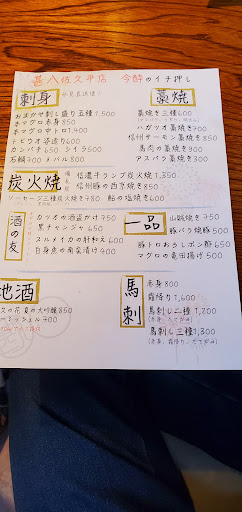 甚八佐久平店 今酔のイチ押し
刺身
おまかせ刺し盛り五種1,500
本マグロ赤身850
本マグロ中トロ1,400
トビウオ姿造り600
カンパチ650 シイラ500
石鯛700 メバル800
藁焼
藁焼き三種600
ハガツオ藁焼き700
信州サーモン藁焼き850
馬肉の藁焼き900
アスパラ藁焼き300
炭火焼
信濃チランプ炭火焼1,300
信州豚の西京焼き850
ソーセージ三種炭火焼き780 鮎の塩焼き600
酒の友
カツオの酒盗かけ750
黒チャンジャ650
スルメイカの肝和え600
白身魚の南蛮漬け400
一品
山賊焼き750
豚バラ焼豚500
豚トロおろしポン酢650
マグロの竜田揚げ500
地酒
大吟醸850
馬刺
赤身800
霜降り1,600
馬刺し二種1,200
馬刺し三種1,300